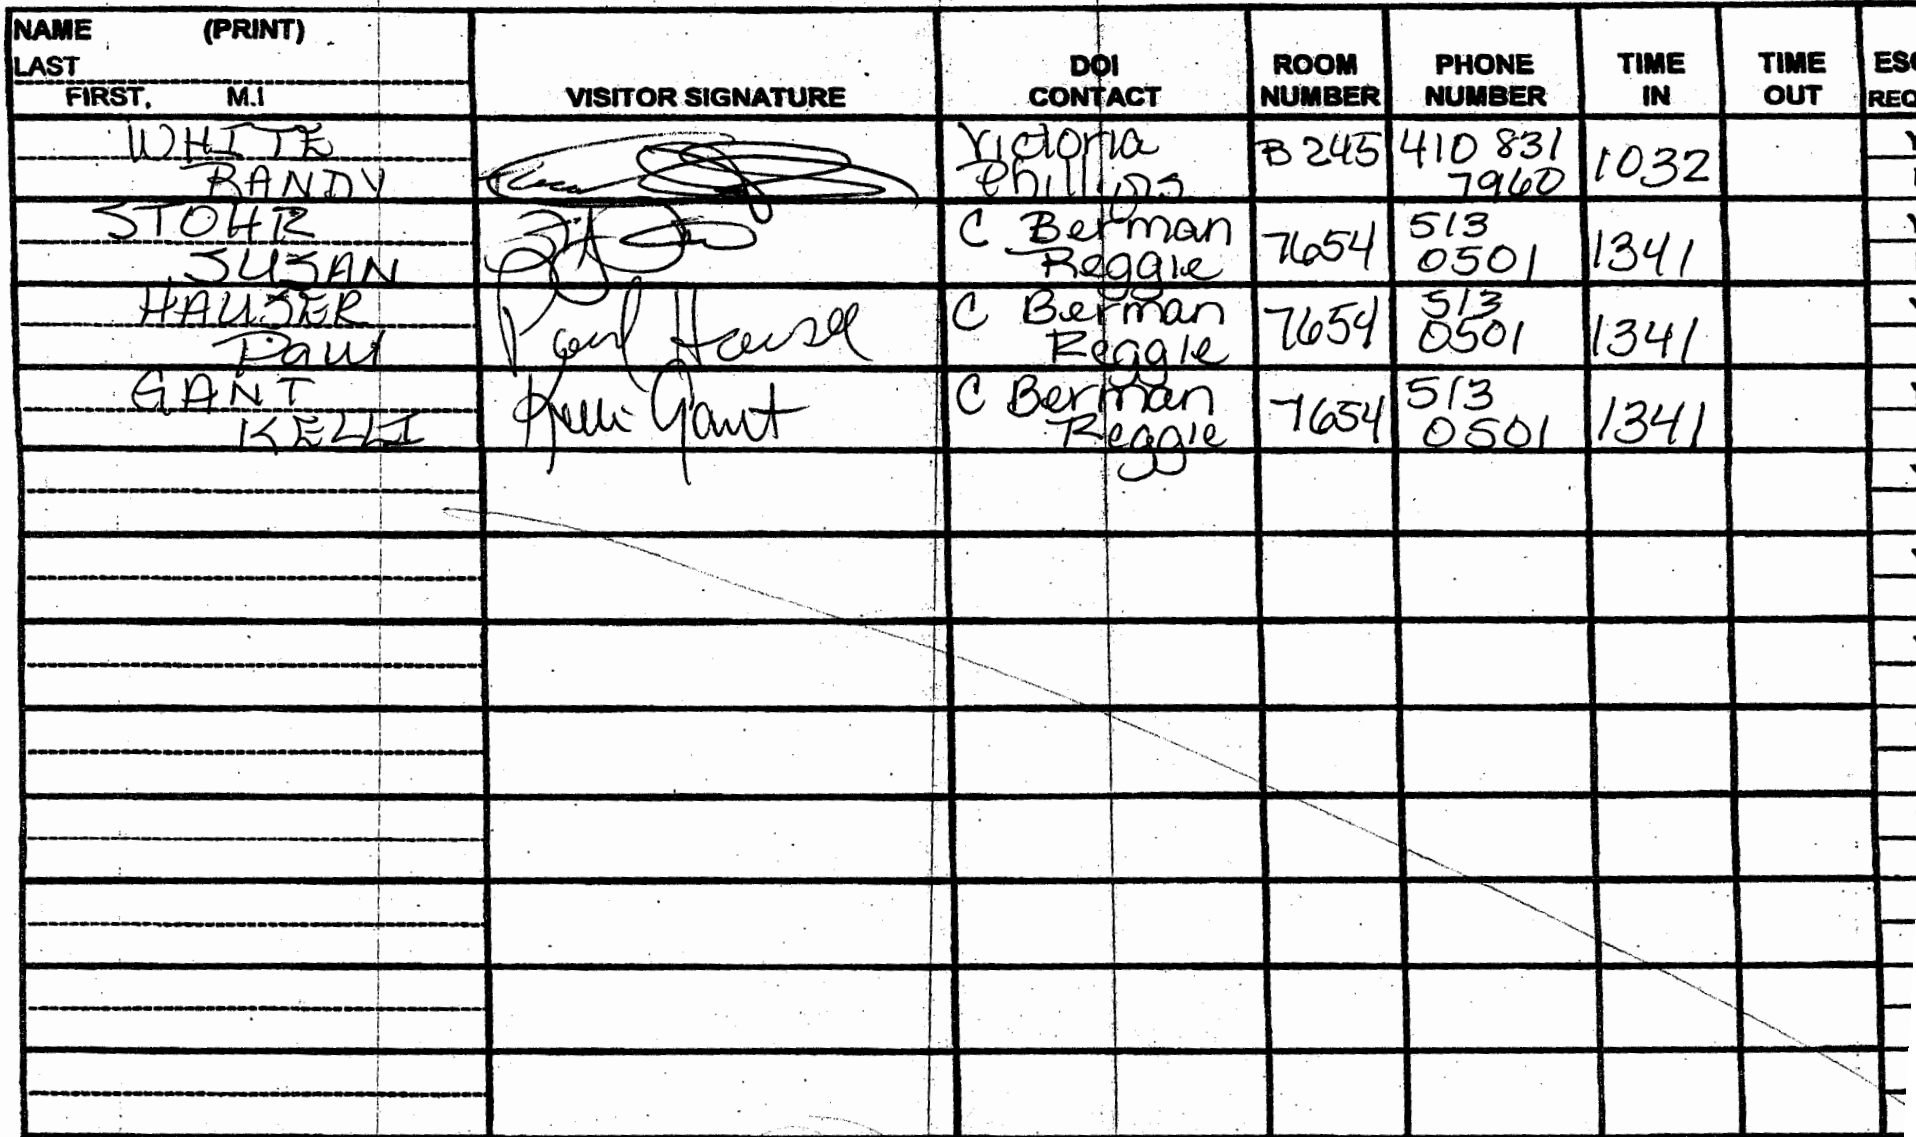 NAME (PRINT)
LAST
FIRST, M.I
VISITOR SIGNATURE
DOI
CONTACT
ROOM
NUMBER
PHONE
NUMBER
TIME
IN
TIME
OUT
WHITE
RANDY
Victoria
Phillips
B 245
410 831
7960
1032
STOHR
SUSAN
C Berman
Reggie
7654
513
0501
1341
HAUSER
Paul
Paul Hauser
C Berman
Reggie
7654
513
0501
1341
GANT
KELLI
Kelli Gant
C Berman
Reggie
7654
513
0501
1341